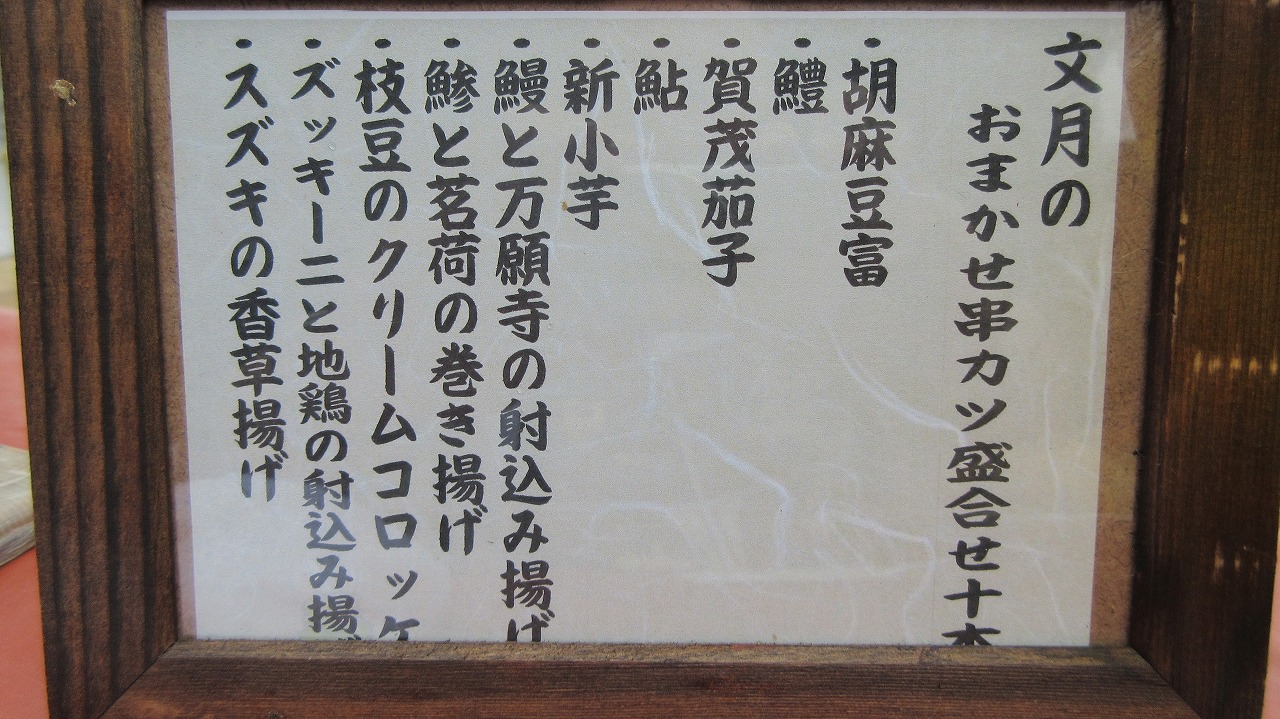 文月の
おまかせ串カツ盛合せ十本
・胡麻豆富
・鱧
・賀茂茄子
・鮎
・新小芋
・鰻と万願寺の射込み揚げ
・鯵と茗荷の巻き揚げ
・枝豆のクリームコロッケ
・ズッキーニと地鶏の射込み揚げ
・スズキの香草揚げ